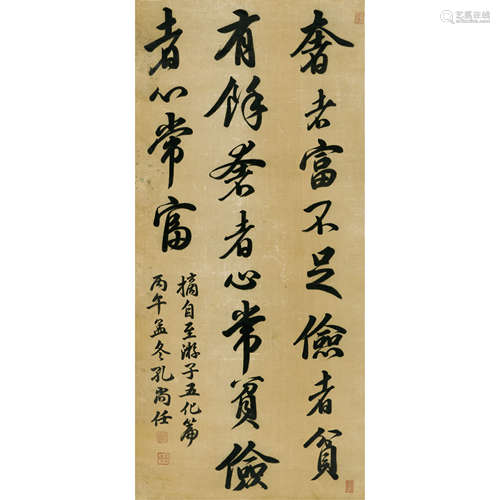 奢者富不足儉者貧
有餘奢者心常貧儉
者心常富
摘自至游子五化篇
丙午孟冬孔尚任